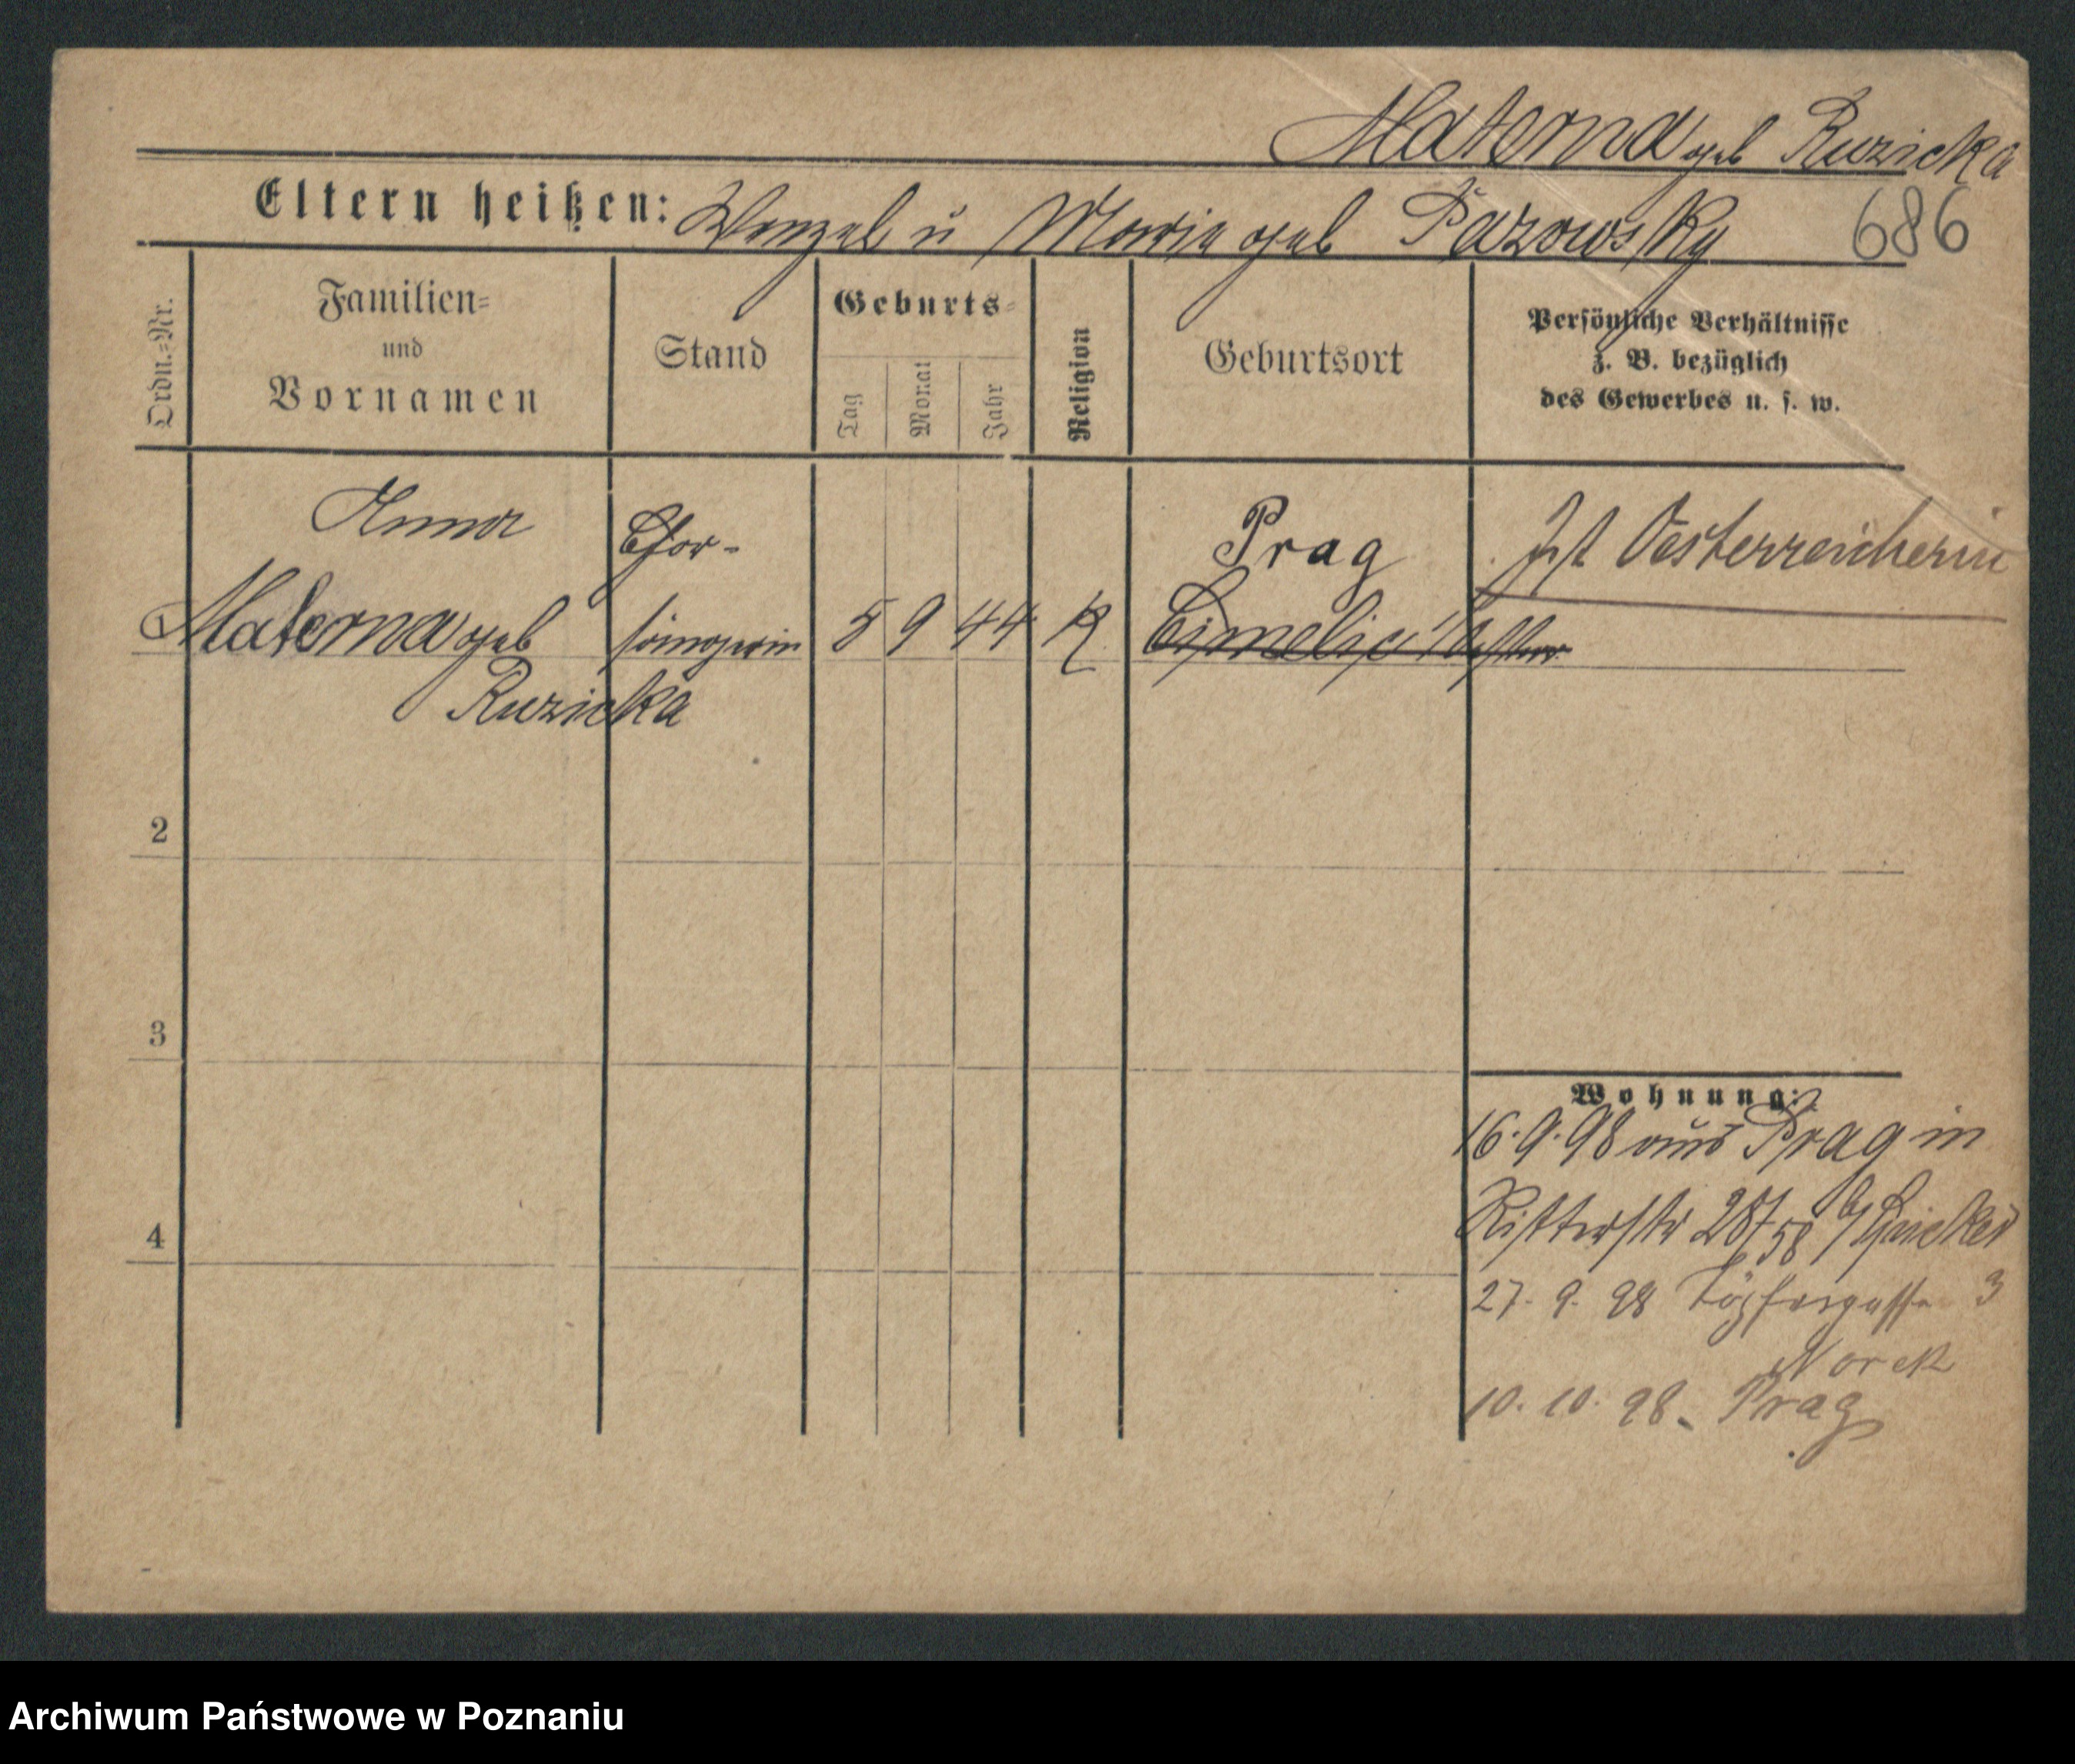 Materna geb Ruzicka
Eltern heißen: Wenzel u Marie geb Pazowsky 686
Ordn.-Nr.
Familien-
und
Vornamen
Stand
Geburts-
Tag
Monat
Jahr
Religion
Geburtsort
Persönliche Verhältnisse
z. B. bezüglich
des Gewerbes u. s. w.
Anna
Materna geb
Ruzicka
Chor-
sängerin
5 9 44 K
Prag
Ist Oesterreicherin
2
3
4
Wohnung:
16.9.98 aus Prag in
Ritterstr
27. 9. 98 Töpfergasse 3
Norek
10. 10. 98. Prag
Archiwum Państwowe w Poznaniu